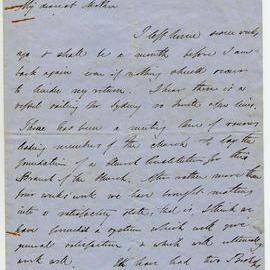 My dearest Mother
I left home some weeks
ago & shall be a month before I am
back again even if nothing should occur
to hinder my return. I hear there is a
vessel sailing for Sydney so write
There has been a meeting here of various
leading members of the church to lay the
foundation of a Church Constitution for this
Branch of the Church. After rather more than
four weeks work we have brought matters
into a satisfactory state, that is I think we
have a system which will give
general satisfaction & which will
work well. We have had two Bishops